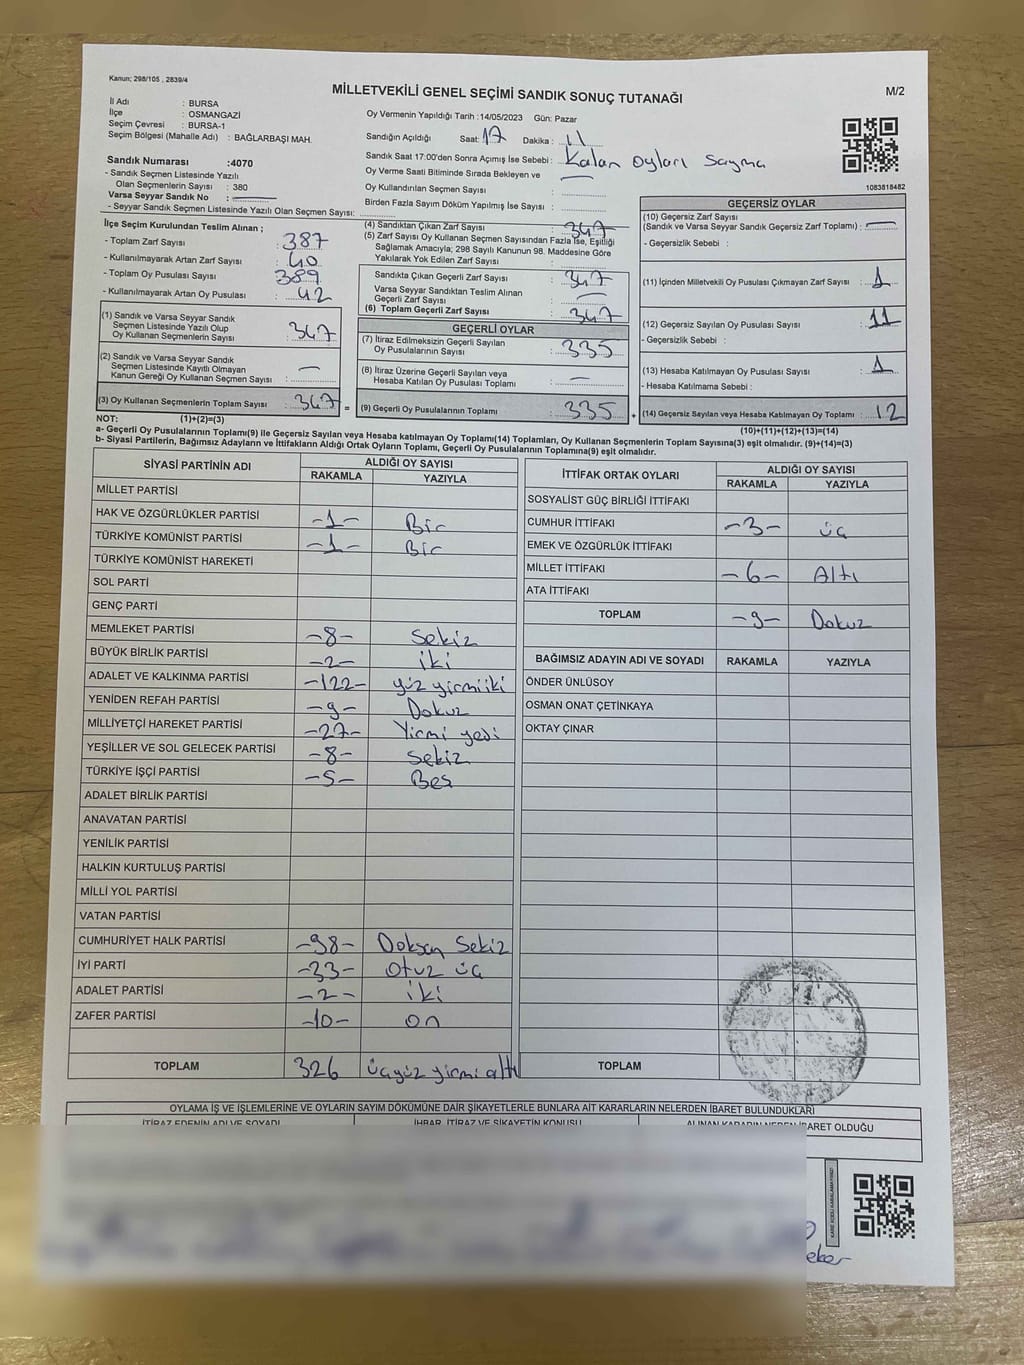 Kanun; 298/105 , 2839/4
MİLLETVEKİLİ GENEL SEÇİMİ SANDIK SONUÇ TUTANAĞI
M/2
İl Adı : BURSA
İlçe : OSMANGAZİ
Seçim Çevresi : BURSA-1
Seçim Bölgesi (Mahalle Adı) : BAĞLARBAŞI MAH.
Oy Vermenin Yapıldığı Tarih :14/05/2023 Gün: Pazar
Sandığın Açıldığı Saat: 17 Dakika : 11
Sandık Saat 17:00'den Sonra Açımış İse Sebebi : Kalan oyları sayma
Oy Verme Saati Bitiminde Sırada Bekleyen ve
Oy Kullandırılan Seçmen Sayısı :
Birden Fazla Sayım Döküm Yapılmış İse Sayısı :
Sandık Numarası :4070
- Sandık Seçmen Listesinde Yazılı
Olan Seçmenlerin Sayısı : 380
Varsa Seyyar Sandık No :
- Seyyar Sandık Seçmen Listesinde Yazılı Olan Seçmen Sayısı:
1083818482
İlçe Seçim Kurulundan Teslim Alınan ;
- Toplam Zarf Sayısı : 387
- Kullanılmayarak Artan Zarf Sayısı : 40
- Toplam Oy Pusulası Sayısı : 389
- Kullanılmayarak Artan Oy Pusulası : 42
(1) Sandık ve Varsa Seyyar Sandık
Seçmen Listesinde Yazılı Olup
Oy Kullanan Seçmenlerin Sayısı : 347
(2) Sandık ve Varsa Seyyar Sandık
Seçmen Listesinde Kayıtlı Olmayan
Kanun Gereği Oy Kullanan Seçmen Sayısı : —
(3) Oy Kullanan Seçmenlerin Toplam Sayısı : 347 =
(4) Sandıktan Çıkan Zarf Sayısı : 347
(5) Zarf Sayısı Oy Kullanan Seçmen Sayısından Fazla İse, Eşitliği
Sağlamak Amacıyla; 298 Sayılı Kanunun 98. Maddesine Göre
Yakılarak Yok Edilen Zarf Sayısı :
Sandıkta Çıkan Geçerli Zarf Sayısı : 347
Varsa Seyyar Sandıktan Teslim Alınan
Geçerli Zarf Sayısı : —
(6) Toplam Geçerli Zarf Sayısı : 347
GEÇERLİ OYLAR
(7) İtiraz Edilmeksizin Geçerli Sayılan
Oy Pusulalarının Sayısı : 335
(8) İtiraz Üzerine Geçerli Sayılan veya
Hesaba Katılan Oy Pusulası Toplamı : —
(9) Geçerli Oy Pusulalarının Toplamı : 335 +
GEÇERSİZ OYLAR
(10) Geçersiz Zarf Sayısı
(Sandık ve Varsa Seyyar Sandık Geçersiz Zarf Toplamı) : —
- Geçersizlik Sebebi :
(11) İçinden Milletvekili Oy Pusulası Çıkmayan Zarf Sayısı : 1
(12) Geçersiz Sayılan Oy Pusulası Sayısı : 11
- Geçersizlik Sebebi :
(13) Hesaba Katılmayan Oy Pusulası Sayısı : 1
- Hesaba Katılmama Sebebi :
(14) Geçersiz Sayılan veya Hesaba Katılmayan Oy Toplamı : 12
NOT: (1)+(2)=(3)
(10)+(11)+(12)+(13)=(14)
a- Geçerli Oy Pusulalarının Toplamı(9) ile Geçersiz Sayılan veya Hesaba katılmayan Oy Toplamı(14) Toplamları, Oy Kullanan Seçmenlerin Toplam Sayısına(3) eşit olmalıdır. (9)+(14)=(3)
b- Siyasi Partilerin, Bağımsız Adayların ve İttifakların Aldığı Ortak Oyların Toplamı, Geçerli Oy Pusulalarının Toplamına(9) eşit olmalıdır.
SİYASİ PARTİNİN ADI ALDIĞI OY SAYISI
RAKAMLA YAZIYLA
MİLLET PARTİSİ
HAK VE ÖZGÜRLÜKLER PARTİSİ -1- Bir
TÜRKİYE KOMÜNİST PARTİSİ -1- Bir
TÜRKİYE KOMÜNİST HAREKETİ
SOL PARTİ
GENÇ PARTİ
MEMLEKET PARTİSİ -8- Sekiz
BÜYÜK BİRLİK PARTİSİ -2- iki
ADALET VE KALKINMA PARTİSİ -122- yüz yirmi iki
YENİDEN REFAH PARTİSİ -9- Dokuz
MİLLİYETÇİ HAREKET PARTİSİ -27- Yirmi yedi
YEŞİLLER VE SOL GELECEK PARTİSİ -8- Sekiz
TÜRKİYE İŞÇİ PARTİSİ -5- Beş
ADALET BİRLİK PARTİSİ
ANAVATAN PARTİSİ
YENİLİK PARTİSİ
HALKIN KURTULUŞ PARTİSİ
MİLLİ YOL PARTİSİ
VATAN PARTİSİ
CUMHURİYET HALK PARTİSİ -98- Doksan Sekiz
İYİ PARTİ -33- otuz üç
ADALET PARTİSİ -2- iki
ZAFER PARTİSİ -10- on
TOPLAM 326 üçyüz yirmi altı
İTTİFAK ORTAK OYLARI ALDIĞI OY SAYISI
RAKAMLA YAZIYLA
SOSYALİST GÜÇ BİRLİĞİ İTTİFAKI
CUMHUR İTTİFAKI -3- üç
EMEK VE ÖZGÜRLÜK İTTİFAKI
MİLLET İTTİFAKI -6- Altı
ATA İTTİFAKI
TOPLAM -9- Dokuz
BAĞIMSIZ ADAYIN ADI VE SOYADI RAKAMLA YAZIYLA
ÖNDER ÜNLÜSOY
OSMAN ONAT ÇETİNKAYA
OKTAY ÇINAR
TOPLAM
OYLAMA İŞ VE İŞLEMLERİNE VE OYLARIN SAYIM DÖKÜMÜNE DAİR ŞİKAYETLERLE BUNLARA AİT KARARLARIN NELERDEN İBARET BULUNDUKLARI
İTİRAZ EDENİN ADI VE SOYADI İHBAR, İTİRAZ VE ŞİKAYETİN KONUSU ALINAN KARARIN NEDEN İBARET OLDUĞU